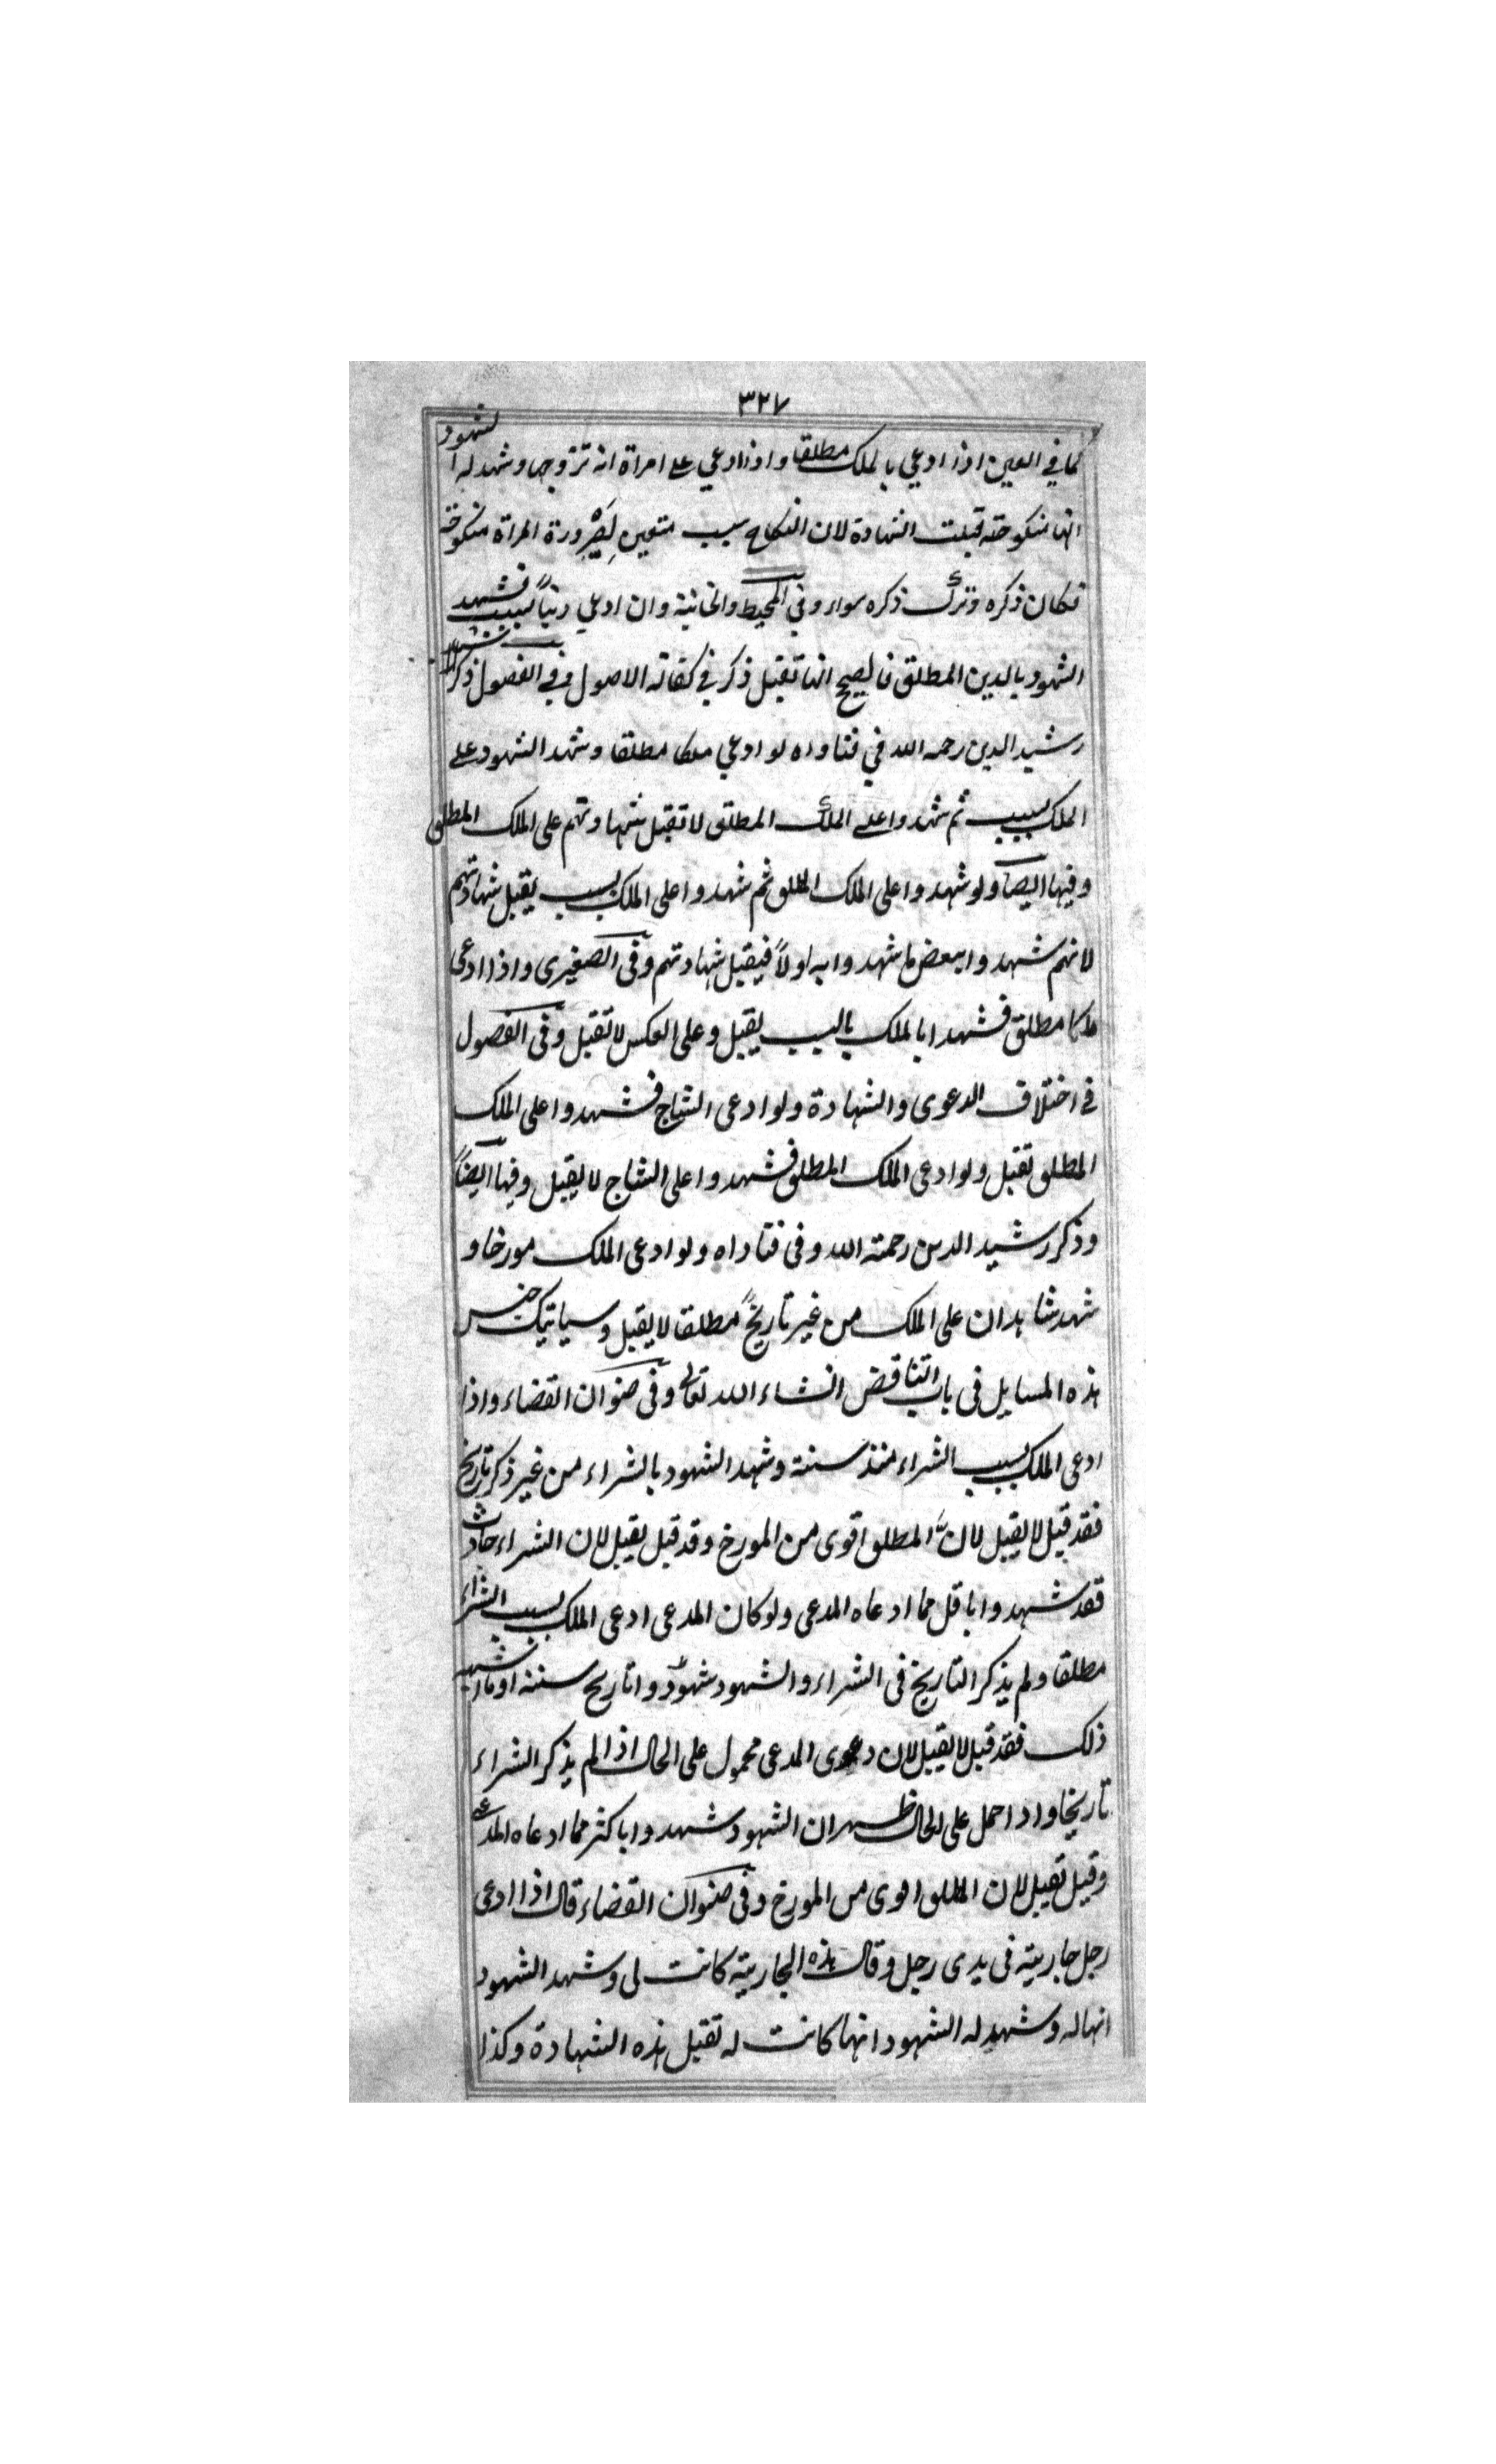 ٣٢٧
كما في العين اذا ادعي بالملك مطلقا واذا ادعي علے امراة انه تزوجها وشهد له الشهود
انها منكوحته قبلت الشهادة لان النكاح سبب متعين لصيرورة المراة منكوحة
فكان ذكره وترك ذكره سواء وفي المحيط والخانية وان ادعي دينا بسبب فشهد
الشهود بالدين المطلق فالصحيح انها تقبل ذكر في كفالة الاصول وفي الفصول ذكر
رشيد الدين رحمه الله في فتاواه لو ادعي ملكا مطلقا وشهد الشهود علے
الملك بسبب ثم شهدوا علے الملك المطلق لا تقبل شهادتهم على الملك المطلق
وفيها ايضا ولو شهدوا على الملك المطلق ثم شهدوا على الملك بسبب يقبل شهادتهم
لانهم شهدوا ببعض ما شهدوا به اولاً فيقبل شهادتهم وفى الصغيرى واذا ادعى
ملكا مطلق فشهدا بالملك بالسبب يقبل وعلى العكس لا تقبل وفى الفصول
في اختلاف الدعوى والشهادة ولو ادعى النتاج فشهدوا على الملك
المطلق تقبل ولو ادعى الملك المطلق فشهدوا على النتاج لا يقبل وفيها ايضاً
وذكر رشيد الدين رحمته الله وفى فتاواه ولو ادعى الملك مورخا و
شهد شاهدان على الملك من غير تاريخ مطلقا لا يقبل وسياتيك جنس
هذه المسايل فى باب التناقض انشاء الله تعالى وفى صنوان القضاء واذا
ادعى الملك بسبب الشراء منذ سنة وشهد الشهود بالشراء من غير ذكر تاريخ
فقد قيل لا يقبل لانّ المطلق اقوى من المورخ وقد قيل يقبل لان الشراء حادث
فقد شهدوا باقل مما ادعاه المدعى ولو كان المدعى ادعى الملك بسبب الشراء
مطلقا ولم يذكر التاريخ فى الشراء والشهود شهدوا تاريخ سنة او ما اشبه
ذلك فقد قيل لا يقبل لان دعوى المدعى محمول على الحال اذا لم يذكر الشراء
تاريخا واذا حمل على الحال ظهر ان الشهود شهدوا باكثر مما ادعاه المدعي
وقيل تقبل لان المطلق اقوى من المورخ وفى صنوان القضاء قال اذا ادعى
رجل جارية فى يدى رجل وقال هذه الجارية كانت لى وشهد الشهود
انها له وشهد له الشهود انها كانت له تقبل هذه الشهادة وكذا